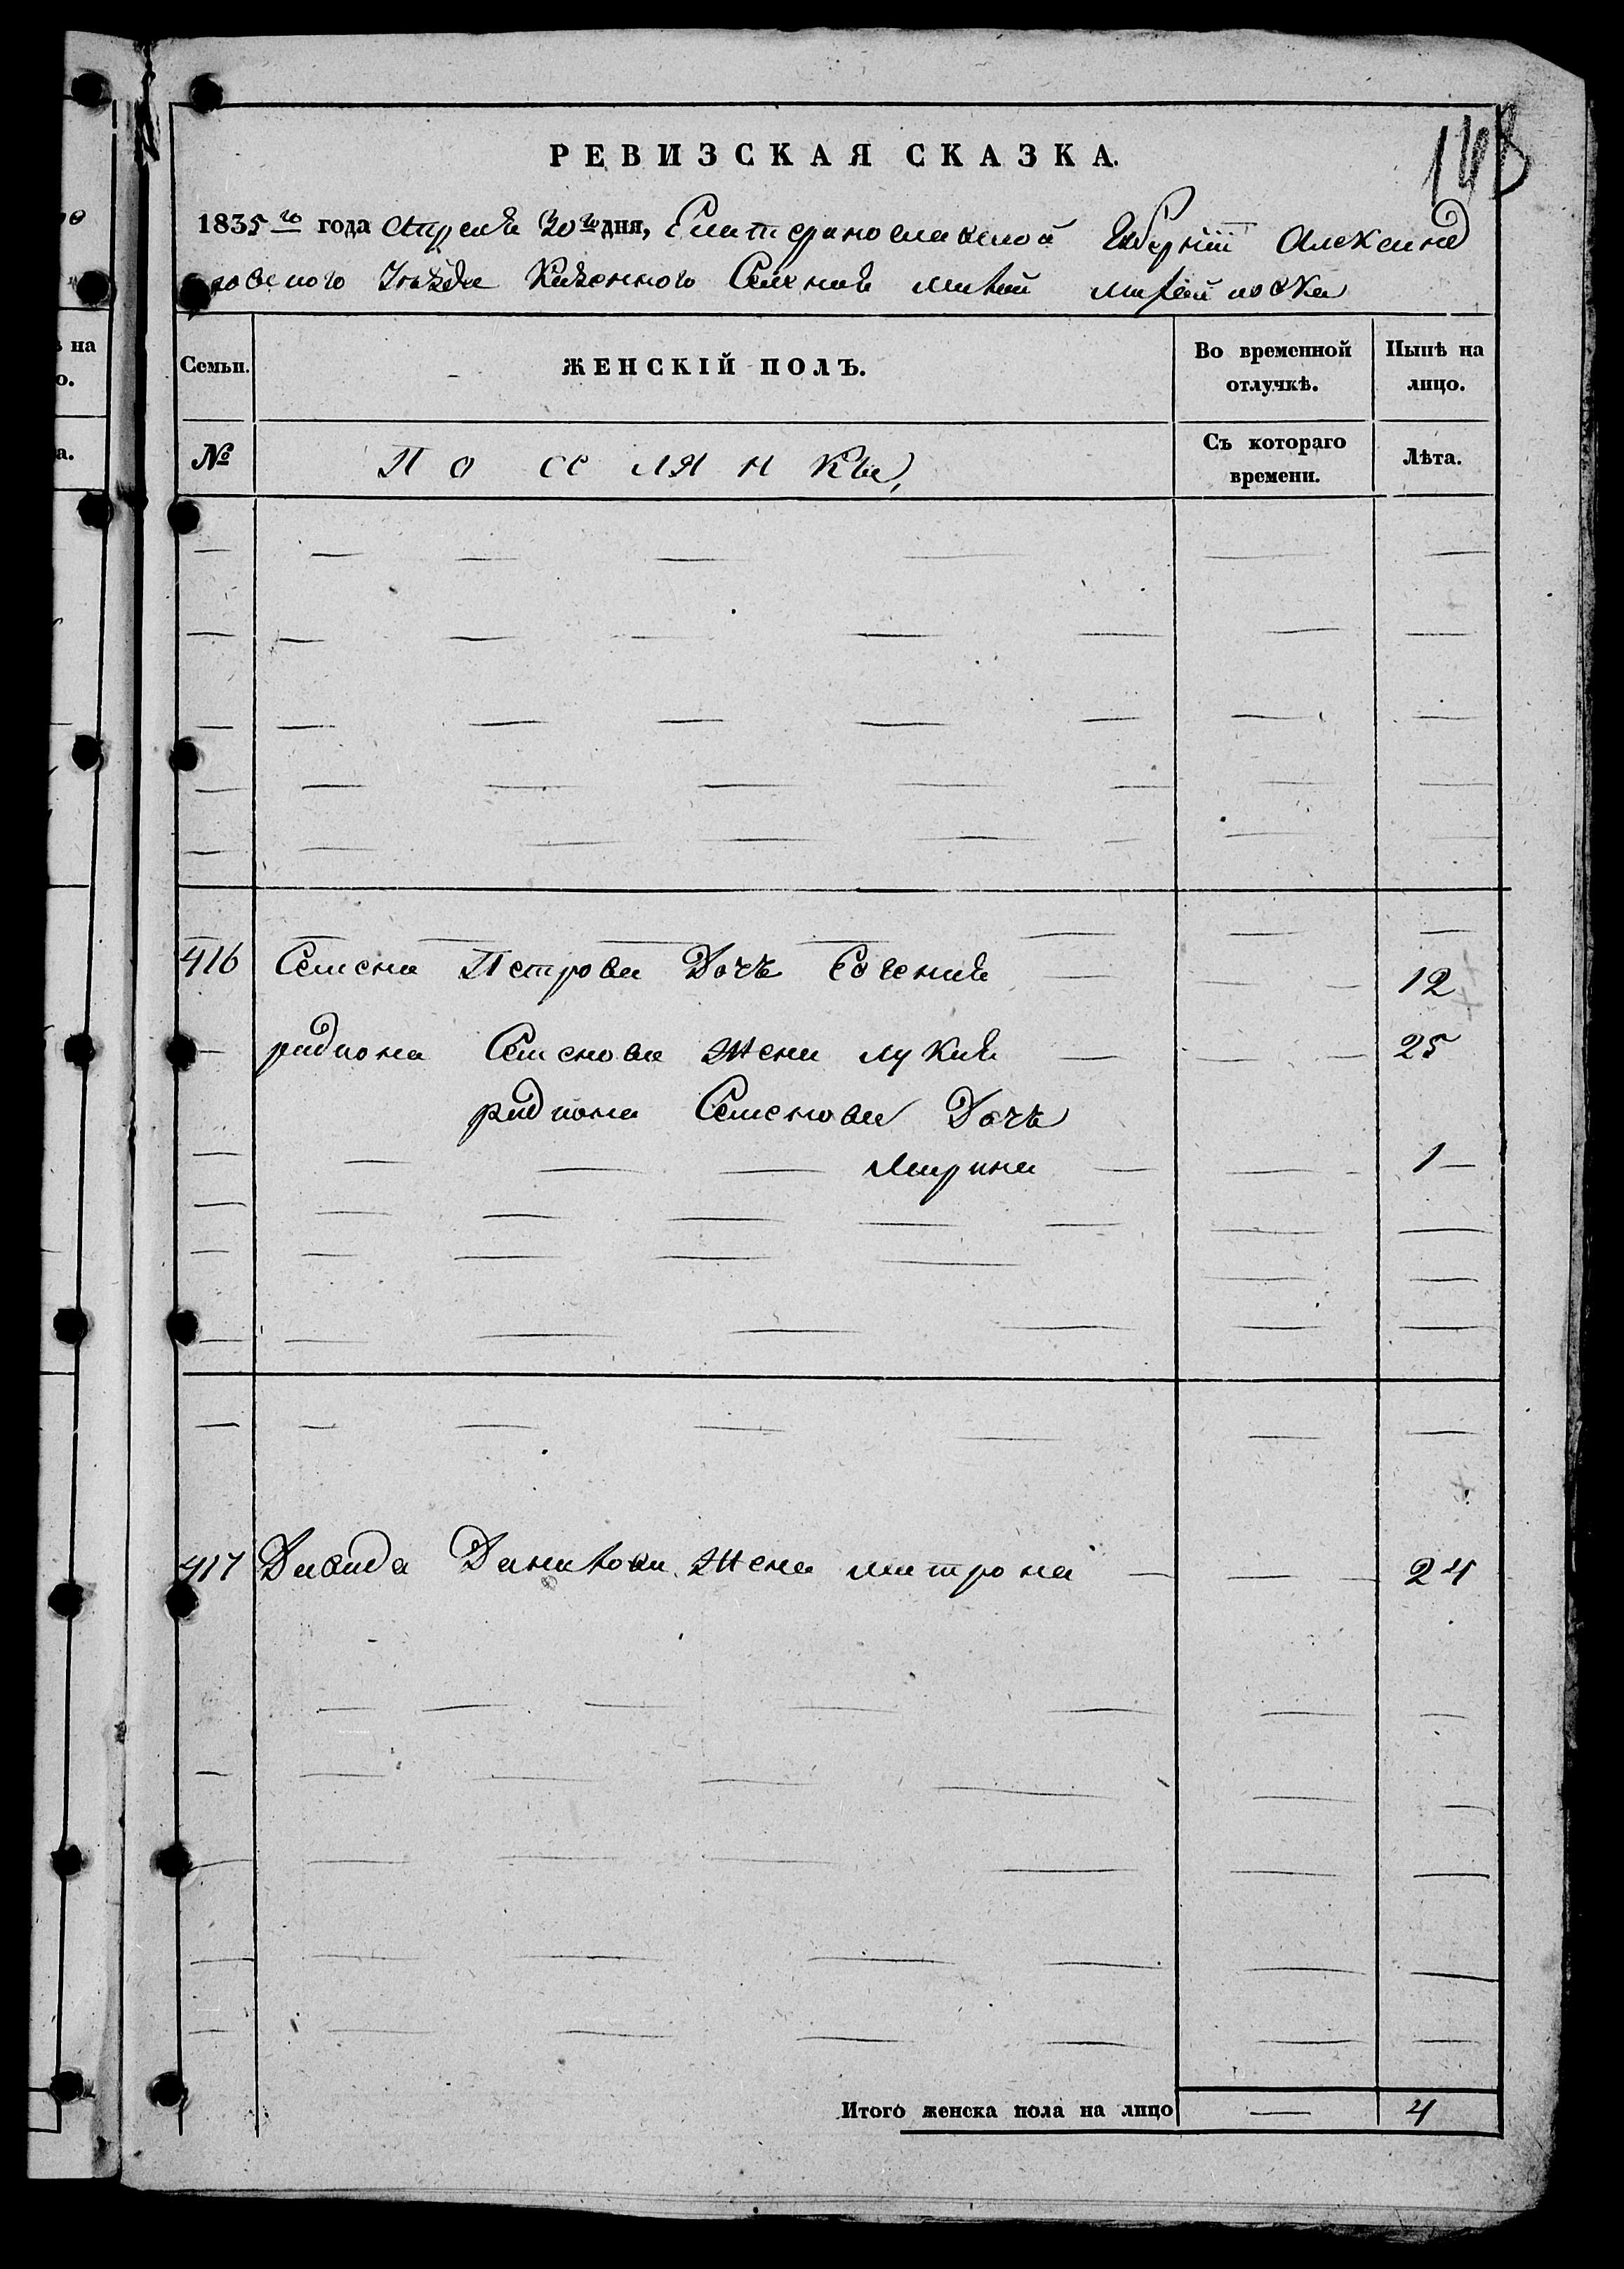 148
РЕВИЗСКАЯ СКАЗКА.
1835го года Апреля 30го дня, Екатеринославской Губернїи Александ
ровского Уѣзда Казенного Селения малой михайловка
Семьи. ЖЕНСКІЙ ПОЛЪ. Во временной отлучкѣ. Нынѣ на лицо.
№ Поселянки, Съ котораго времени. Лѣта.
416 Семена Петрова Дочь Евгения 12
радиона Семенова Жена лукия 25
радиона Семенова Дочь
Марина 1
417 Давида Данилова Жена матрона 24
Итого женска пола на лицо — 4
ѣ на
о.
а.